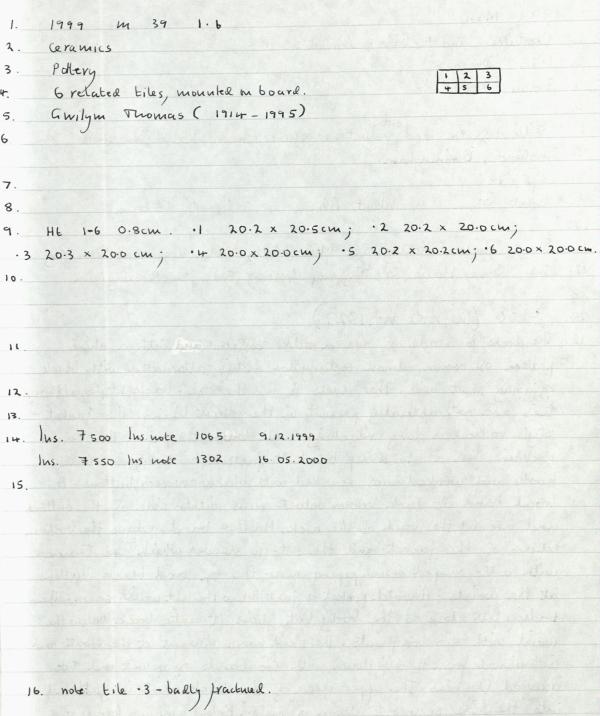 1. 1999 m 39 1-6
2. Ceramics
3. Pottery
1 2 3
4. 6 related tiles, mounted on board.
4 5 6
5. Gwilym Thomas (1914-1995)
6
7.
8.
9. Ht 1-6 0.8cm. .1 20.2 x 20.5cm; .2 20.2 x 20.0cm;
.3 20.3 x 20.0 cm; .4 20.0 x 20.0cm; .5 20.2 x 20.2cm; .6 20.0 x 20.0cm.
10.
11
12.
13.
14. Ins. 7500 Ins note 1065 9.12.1999
Ins. 7550 Ins note 1302 16 05.2000
15.
16. note tile .3 - badly fractured.